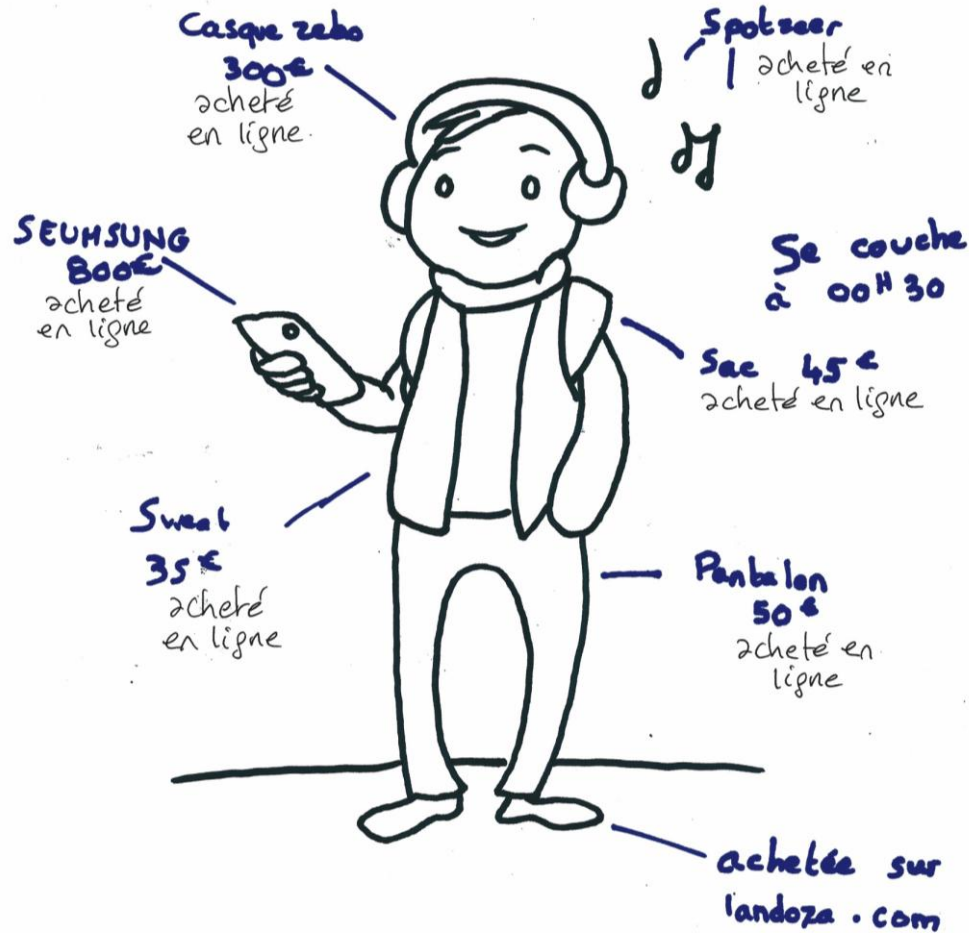 Casque zebo
300€
acheté
en ligne.
Spotzeer
acheté en
ligne
SEUMSUNG
800€
acheté
en ligne
Se couche
à 00H30
Sac 45€
acheté en ligne
Sweat
35€
acheté
en ligne
Pantalon
50€
acheté en
ligne
achetée sur
landoza.com